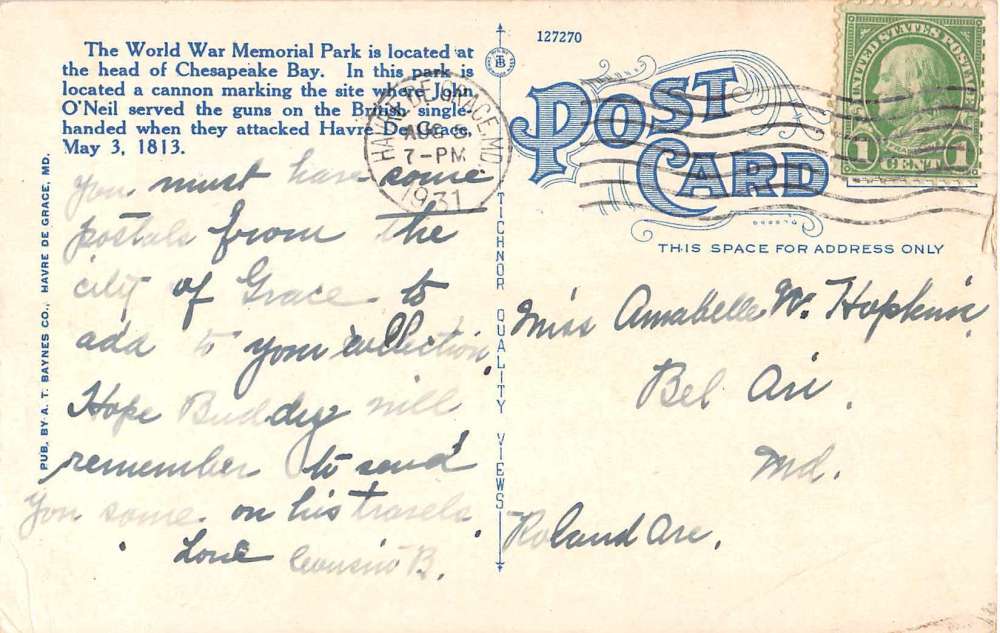 The World War Memorial Park is located at
the head of Chesapeake Bay. In this park is
located a cannon marking the site where John
O'Neil served the guns on the British single-
handed when they attacked Havre De Grace,
May 3, 1813.
You must have some
postals from the
city of Grace to
add to your collection.
Hope Buddy will
remember to send
you some on his travels.
Love Cousin B.
PUB. BY A. T. BAYNES CO., HAVRE DE GRACE, MD.
HAVRE DE GRACE, MD.
AUG
7-PM
1931
TICHNOR QUALITY VIEWS
127270
POST
CARD
THIS SPACE FOR ADDRESS ONLY
UNITED STATES POSTAGE
1 CENT 1
Miss Annabelle W. Hopkins,
Bel Air,
Md.
Roland Ave.